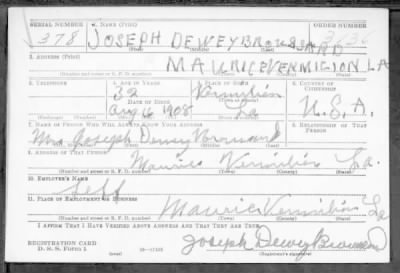 SERIAL NUMBER 1. NAME (Print) ORDER NUMBER
378 JOSEPH DEWEY BROUSSARD
(First) (Middle) (Last)
2. ADDRESS (Print)
MAURICE VERMILION LA
(Number and street or R. F. D. number) (Town) (County) (State)
3. TELEPHONE 4. AGE IN YEARS 5. PLACE OF BIRTH 6. COUNTRY OF CITIZENSHIP
32 Vermilion
DATE OF BIRTH
Aug 6 1908 La U.S.A.
7. NAME OF PERSON WHO WILL ALWAYS KNOW YOUR ADDRESS 8. RELATIONSHIP OF THAT PERSON
Mrs Joseph Dewey Broussard
9. ADDRESS OF THAT PERSON
Maurice Vermilion La.
(Number and street or R. F. D. number) (Town) (County) (State)
10. EMPLOYER'S NAME
Self
11. PLACE OF EMPLOYMENT OR BUSINESS
Maurice Vermilion La
(Number and street or R. F. D. number) (Town) (County) (State)
I AFFIRM THAT I HAVE VERIFIED ABOVE ANSWERS AND THAT THEY ARE TRUE.
REGISTRATION CARD
D. S. S. Form 1 Joseph Dewey Broussard
(Registrant's signature)